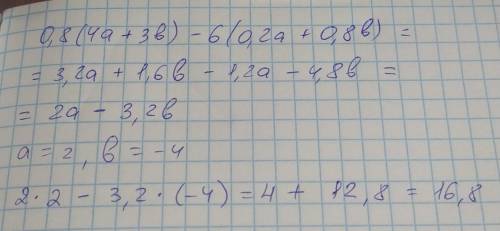 0,8(4а + 3в) - 6(0,2а + 0,8в) =
= 3,2а + 1,6в - 1,2а - 4,8в =
= 2а - 3,2в
а = 2, в = -4
2·2 - 3,2·(-4) = 4 + 12,8 = 16,8